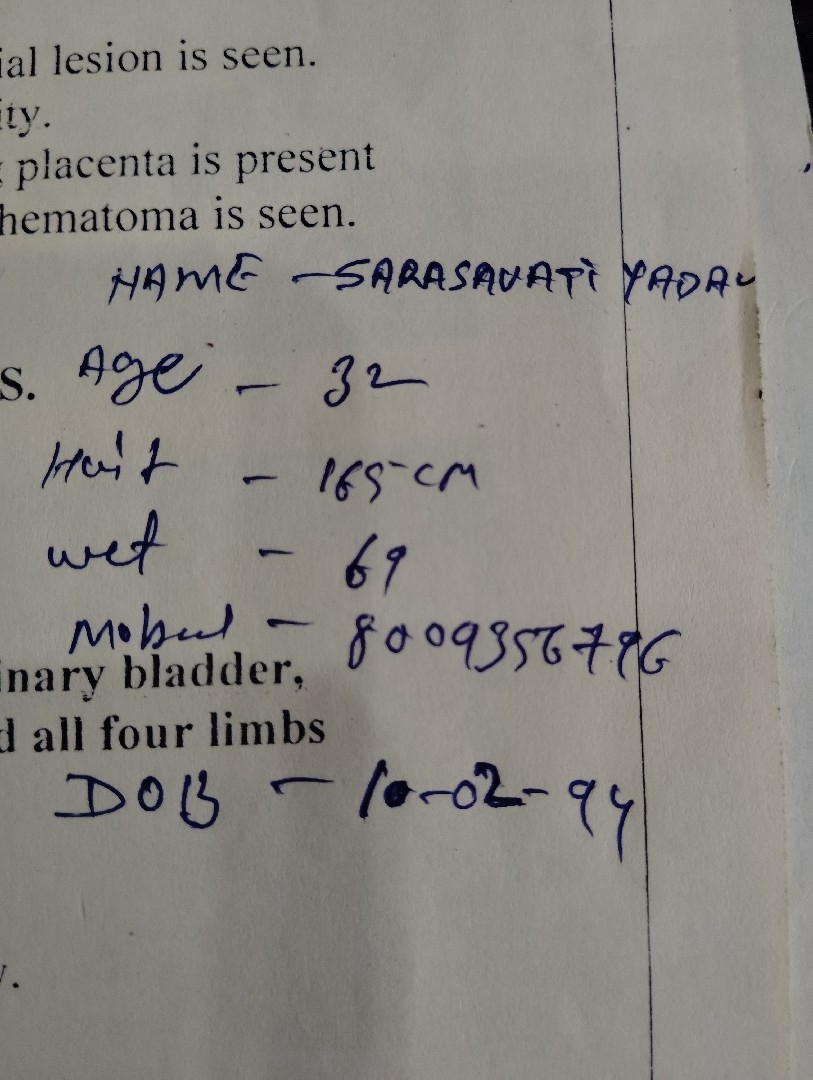 ial lesion is seen.
ity.
placenta is present
hematoma is seen.
NAME - SARASAVATI YADAV
s. Age - 32
Hait - 165 CM
wet - 69
Mobeul - 8009356796
inary bladder,
d all four limbs
DOB - 10-02-94
y.